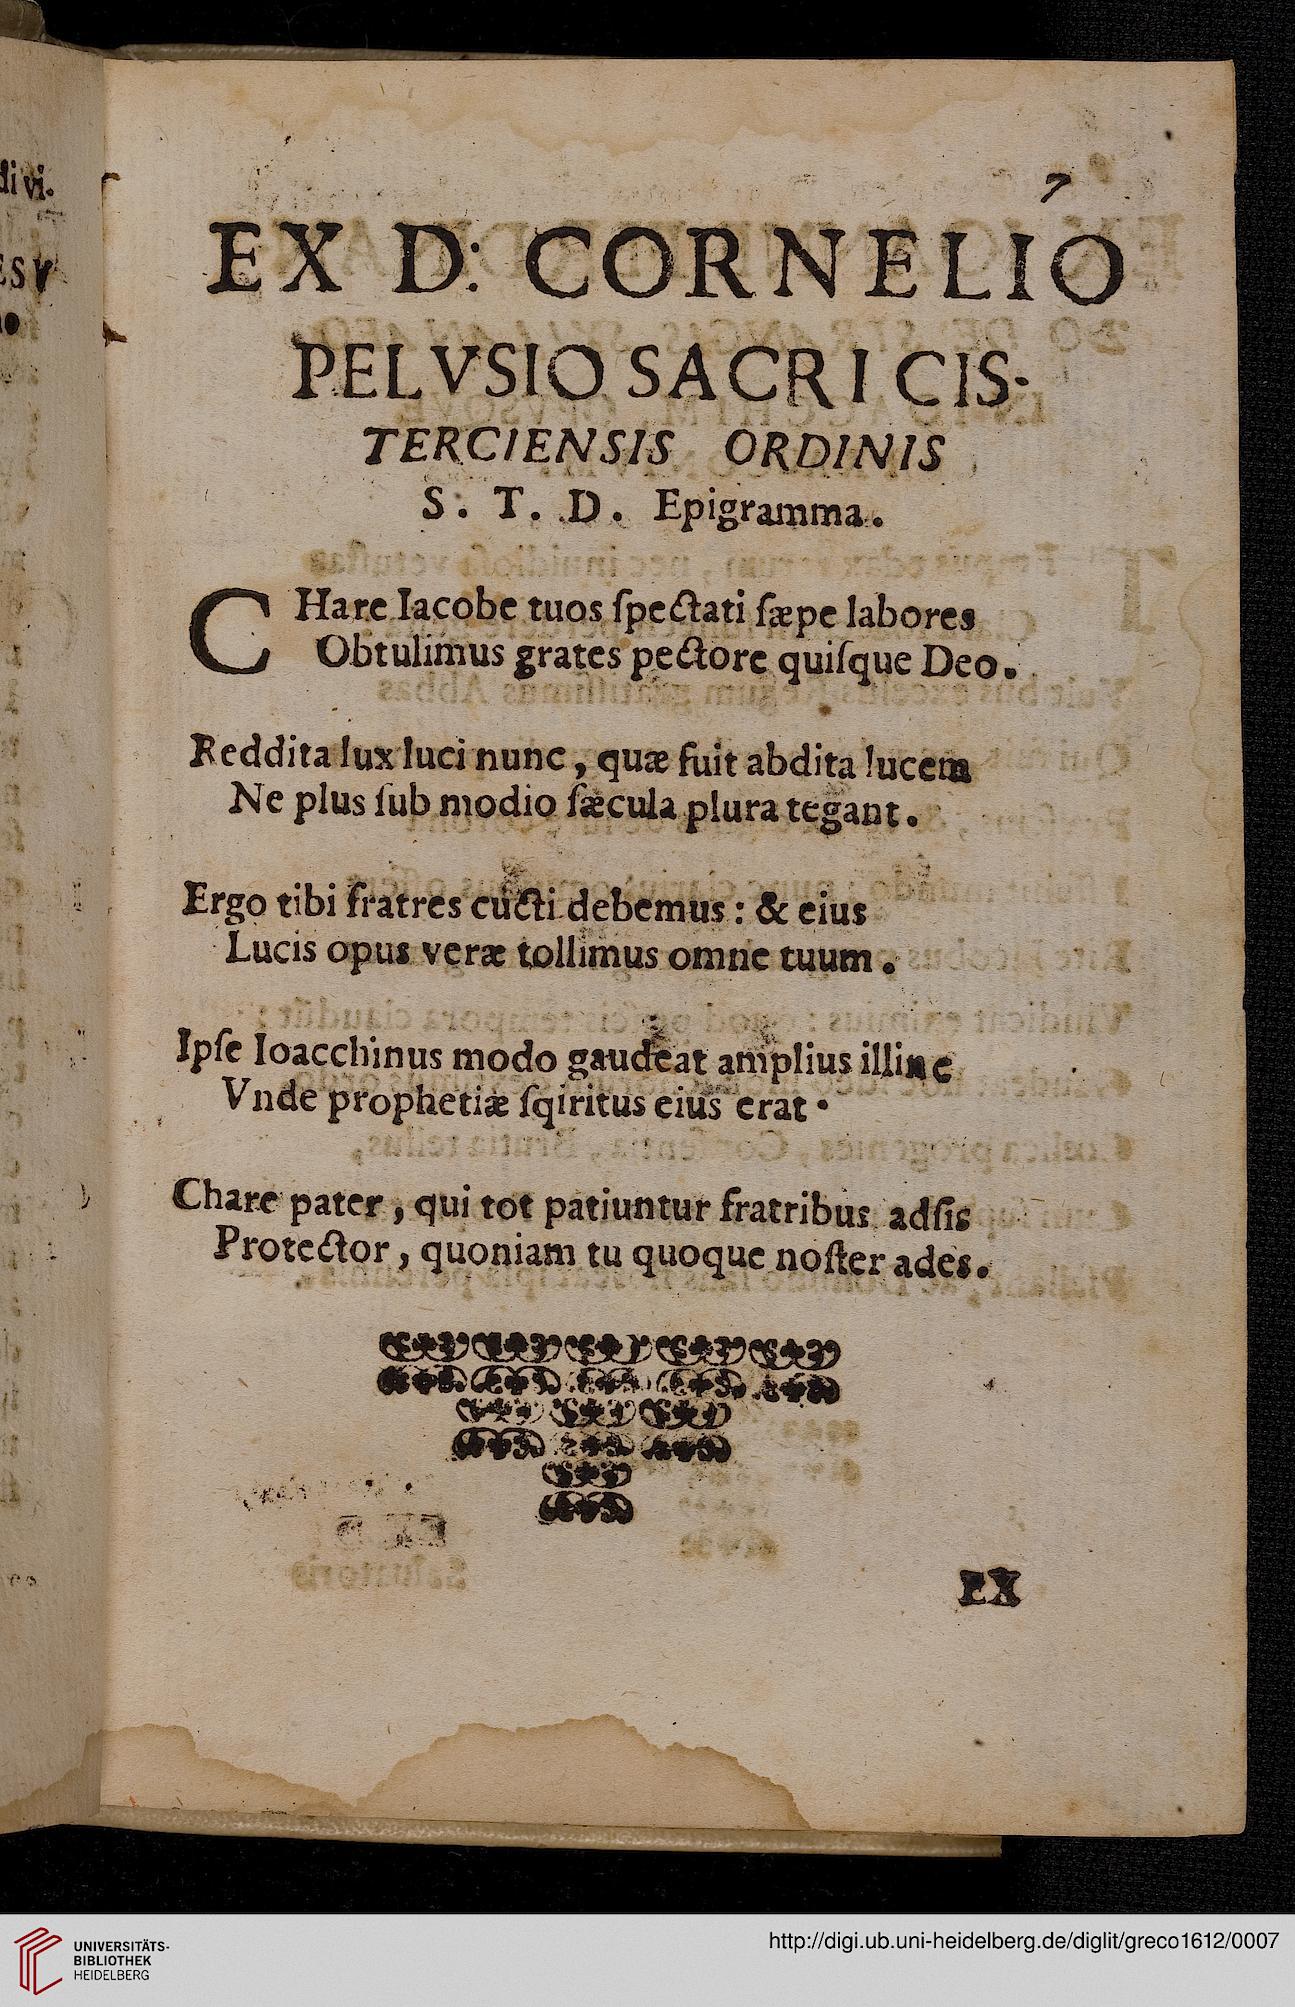 di vi.
ESV
7
EX D: CORNELIO
PELVSIO SACRI CIS-
TERCIENSIS ORDINIS
S. T. D. Epigramma.
CHare Iacobe tuos ſpectati ſæpe labores
Obtulimus grates pectore quiſque Deo.
Reddita lux luci nunc, quæ fuit abdita lucem
Ne plus ſub modio ſæcula plura tegant.
Ergo tibi fratres cucti debemus: & eius
Lucis opus veræ tollimus omne tuum.
Ipſe Ioacchinus modo gaudeat amplius illinc
Vnde prophetiæ ſqiritus eius erat.
Chare pater, qui tot patiuntur fratribus adſis
Protector, quoniam tu quoque noſter ades.
EX
UNIVERSITÄTS-
BIBLIOTHEK
HEIDELBERG
http://digi.ub.uni-heidelberg.de/diglit/greco1612/0007